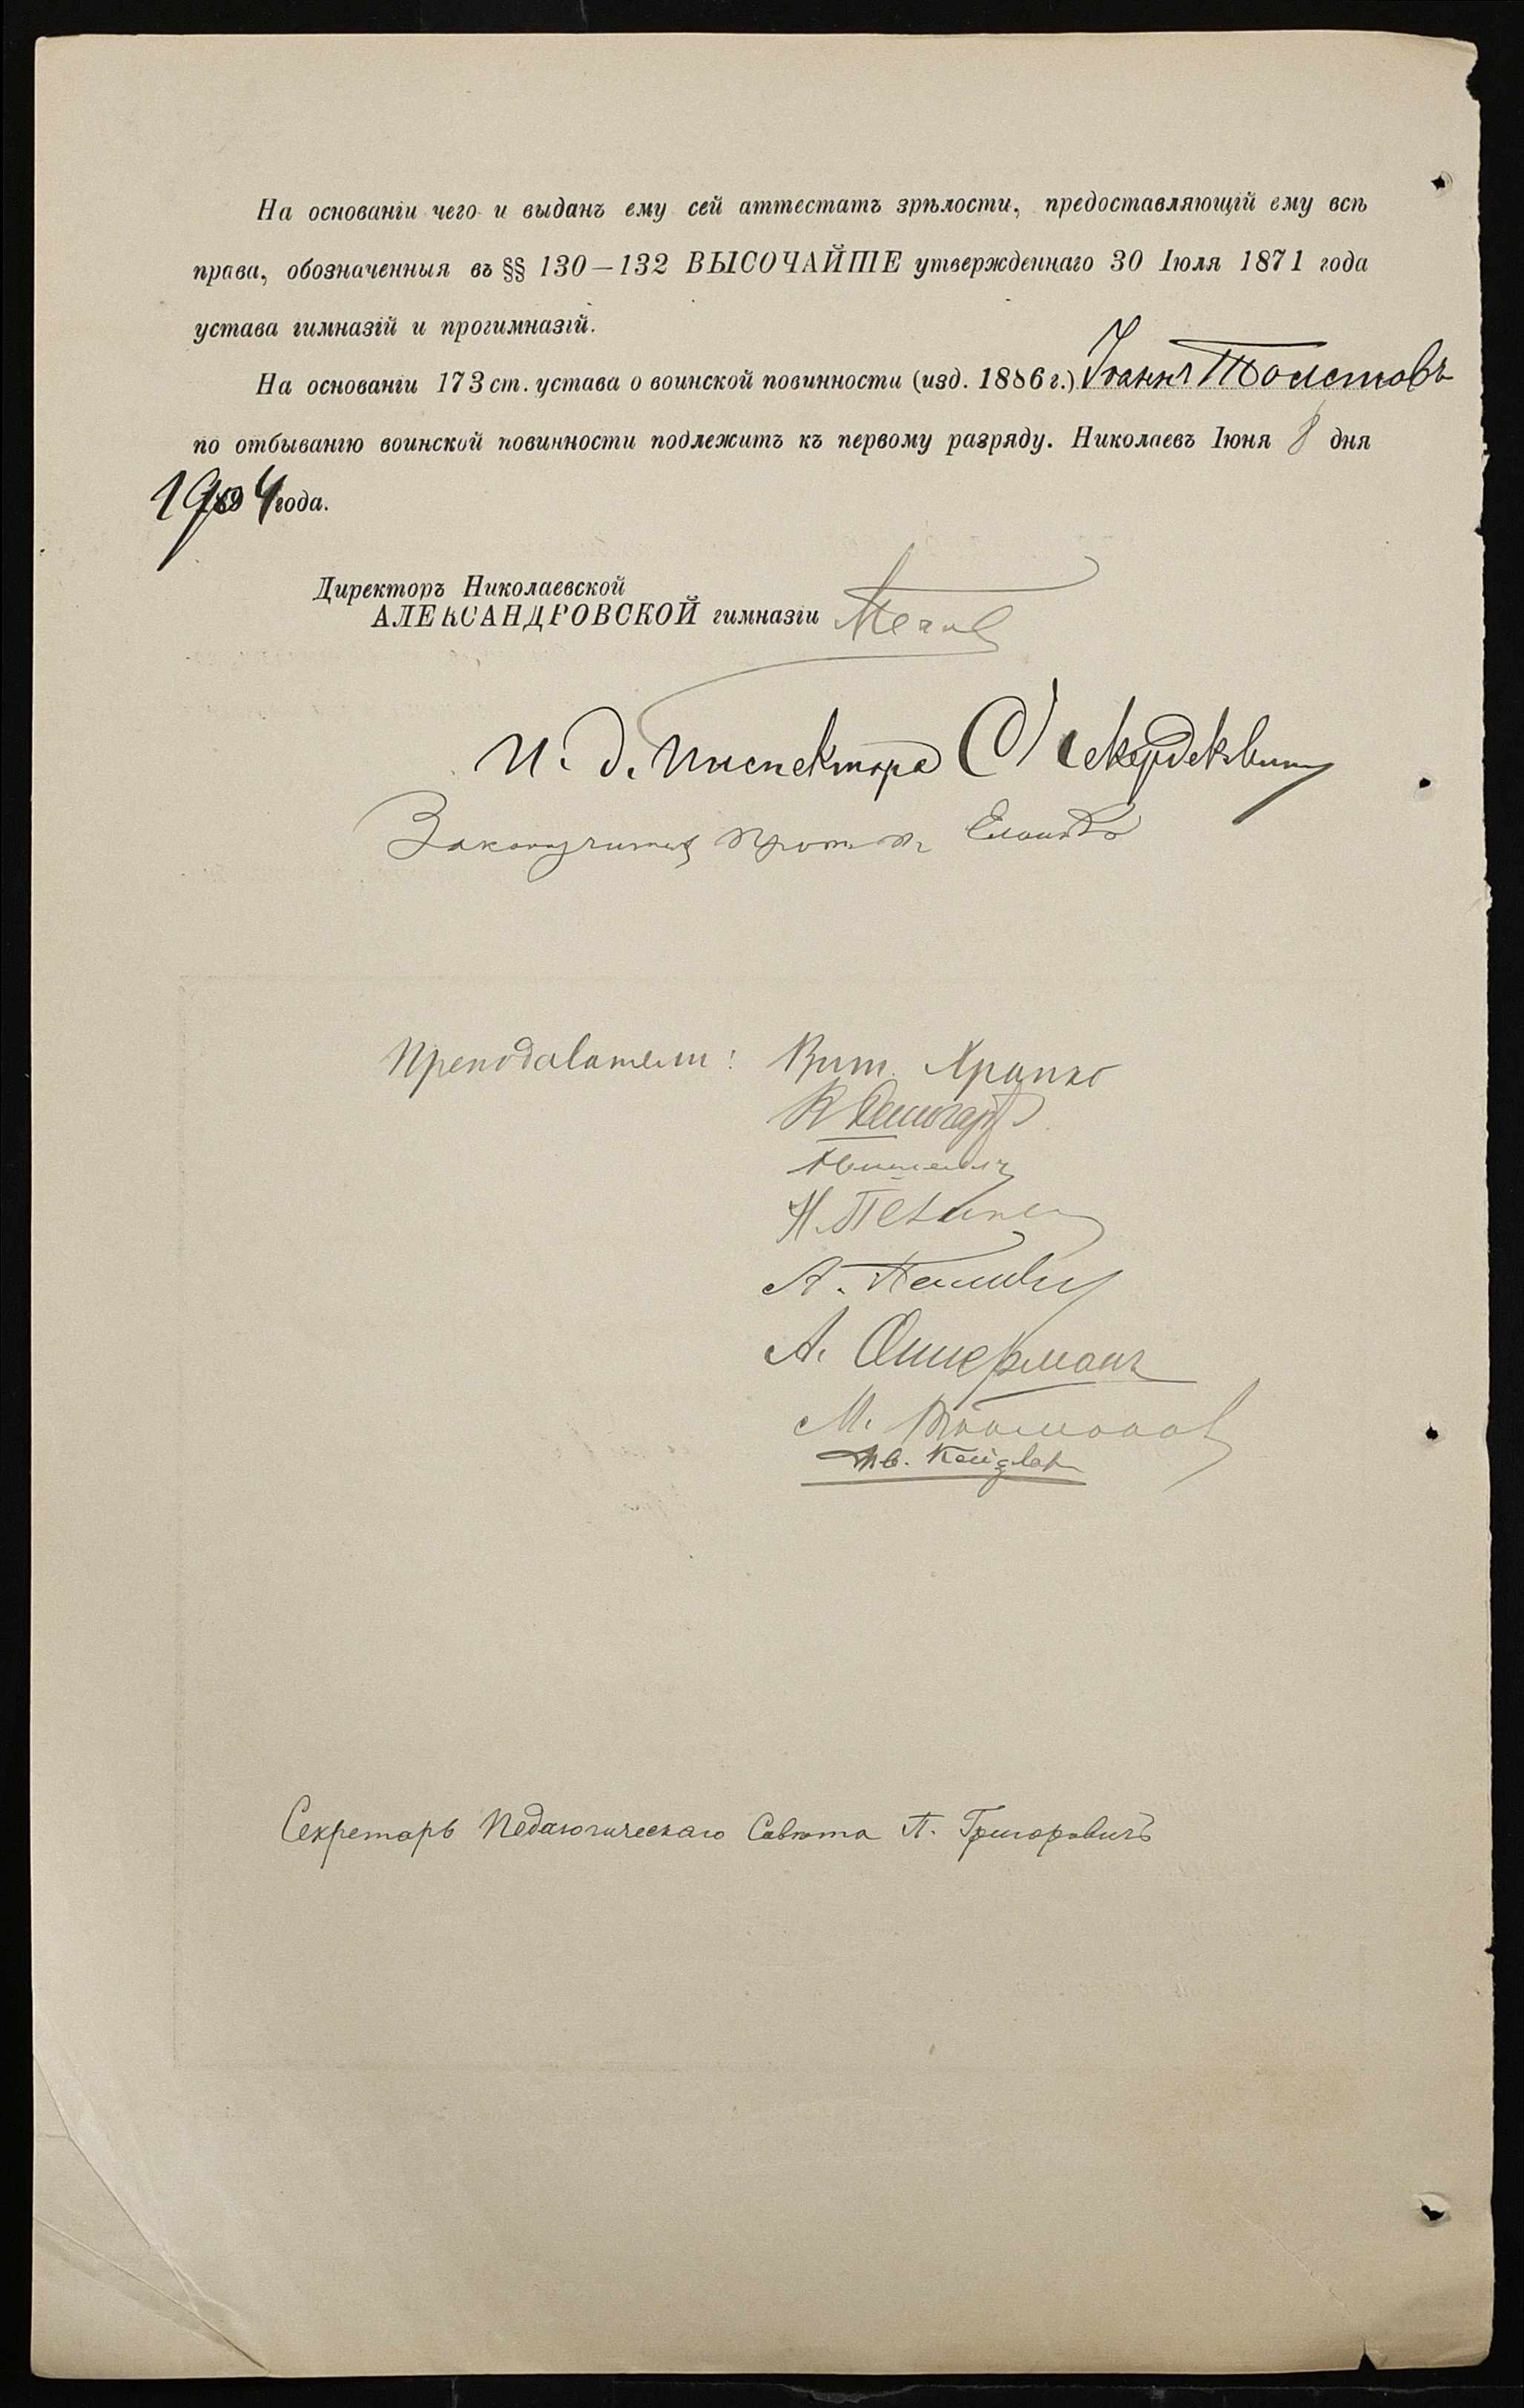 На основаніи чего и выданъ ему сей аттестатъ зрѣлости, предоставляющій ему всѣ
права, обозначенныя въ §§ 130—132 ВЫСОЧАЙШЕ утвержденнаго 30 Іюля 1871 года
устава гимназій и прогимназій.
На основаніи 173 ст. устава о воинской повинности (изд. 1886 г.) Іоаннъ Толстовъ
по отбыванію воинской повинности подлежитъ къ первому разряду. Николаевъ Іюня 8 дня
1904 года.
Директоръ Николаевской
АЛЕКСАНДРОВСКОЙ гимназіи
И. д. Инспектора С.
Законоучитель
Преподаватели: Вит. Храпко
К
Н.
А.
А. Фишерманъ
М.
Секретарь Педагогическаго Совѣта П. Григоровичъ